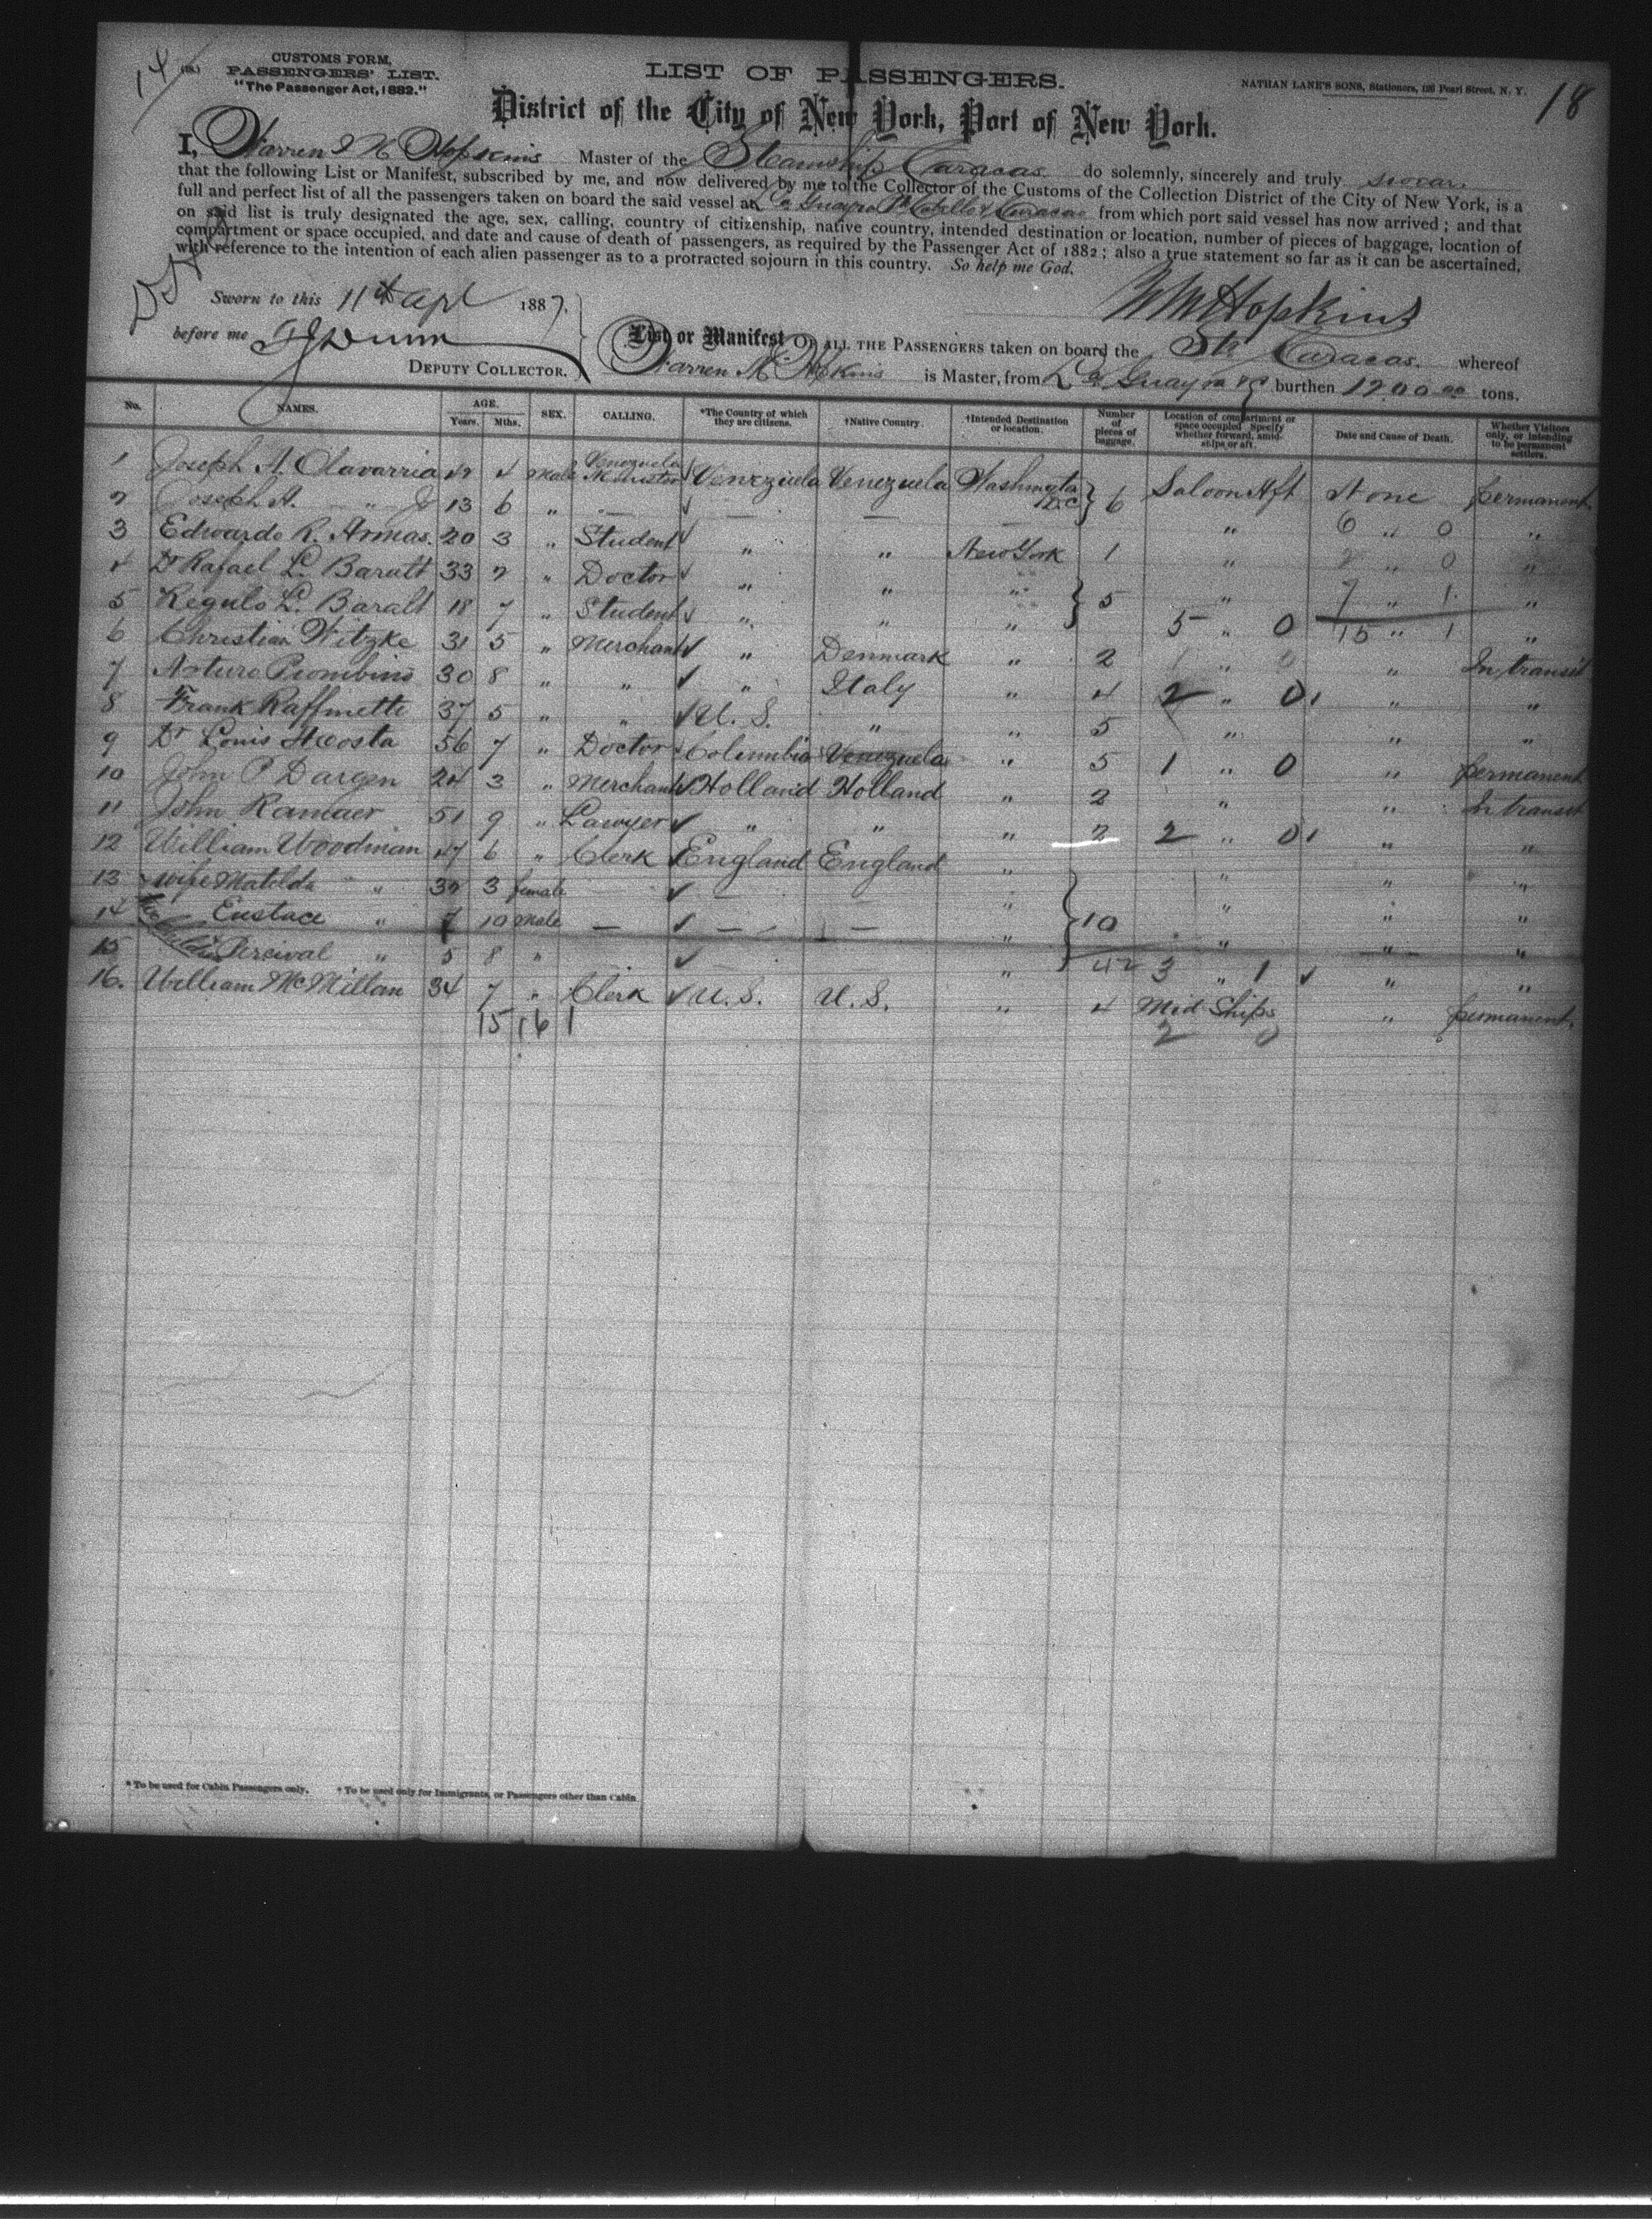 14
(18.)
CUSTOMS FORM,
PASSENGERS' LIST.
"The Passenger Act, 1882."
LIST OF PASSENGERS.
NATHAN LANE'S SONS, Stationers, 126 Pearl Street, N. Y.
18
District of the City of New York, Port of New York.
I, Warren M Hopkins Master of the Steamship Caracas do solemnly, sincerely and truly swear
that the following List or Manifest, subscribed by me, and now delivered by me to the Collector of the Customs of the Collection District of the City of New York, is a
full and perfect list of all the passengers taken on board the said vessel at La Guayra Pto Cabello & Curacao from which port said vessel has now arrived; and that
on said list is truly designated the age, sex, calling, country of citizenship, native country, intended destination or location, number of pieces of baggage, location of
compartment or space occupied, and date and cause of death of passengers, as required by the Passenger Act of 1882; also a true statement so far as it can be ascertained,
with reference to the intention of each alien passenger as to a protracted sojourn in this country. So help me God.
Sworn to this 11th Apl 1887.
W M Hopkins
before me
DEPUTY COLLECTOR.
List or Manifest OF ALL THE PASSENGERS taken on board the Str Caracas. whereof
Warren M. Hopkins is Master, from La Guayra &c burthen 1200 00 tons.
No. NAMES. AGE. Years. Mths. SEX. CALLING. *The Country of which they are citizens. †Native Country. †Intended Destination or location. Number of pieces of baggage. Location of compartment or space occupied. Specify whether forward, amidships or aft. Date and Cause of Death. Whether Visitors only, or intending to be permanent settlers.
1 Joseph A. Olavarria 42 4 Male Venezuela Minister Venezuela Venezuela Washington D.C. } 6 Saloon Aft None permanent
2 Joseph A. " Jr 13 6 " — — — " 6 " 0 "
3 Edwardo R. Armas. 20 3 " Student " " New York 1 " 2 " 0 "
4 Dr Rafael L. Baralt 33 2 " Doctor " " " } 5 " 7 " 1 "
5 Regulo L. Baralt 18 7 " Student " " " 5 " 0 15 " 1 "
6 Christian Witzke 31 5 " Merchant ✓ " Denmark " 2 1 " 0 " In transit
7 Arturo Piombino 30 8 " " ✓ " Italy " 4 2 " 0 " "
8 Frank Raffinette 37 5 " " ✓ U. S. " " 5 " " "
9 Dr Louis Acosta 56 7 " Doctor Columbia Venezuela " 5 1 " 0 " permanent
10 John P Dargen 24 3 " Merchant ✓ Holland Holland " 2 " " In transit
11 John Ramaer 51 9 " Lawyer ✓ " " " 2 2 " 0 " "
12 William Woodman 47 6 " Clerk England England " " " "
13 wife Matilda " 32 3 female ✓ — " " " "
14 Eustace " 7 10 male — ✓ — — " } 10 " " "
15 Percival " 5 8 " ✓ " 42 3 " 1 ✓ " "
16. William McMillan 34 7 " Clerk ✓ U.S. U.S. " 4 Mid Ships " permanent.
15 16 1 2 0
* To be used for Cabin Passengers only. † To be used only for Immigrants, or Passengers other than Cabin